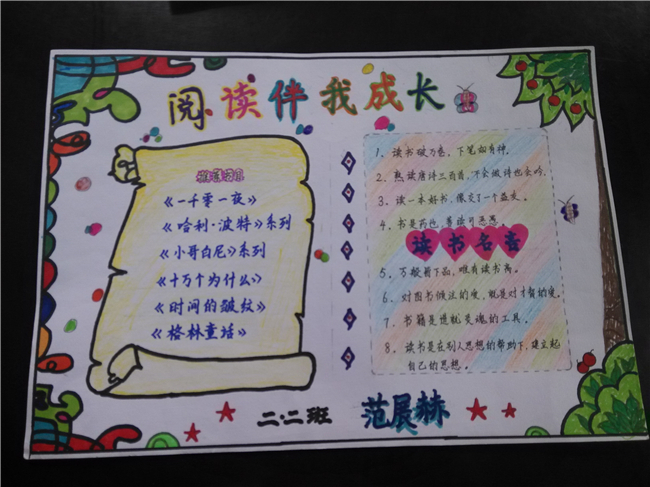 阅读伴我成长
推荐书目
《一千零一夜》
《哈利·波特》系列
《小哥白尼》系列
《十万个为什么》
《时间的皱纹》
《格林童话》
1、读书破万卷，下笔如有神。
2、熟读唐诗三百首，不会做诗也会吟。
3、读一本好书，像交了一个益友。
4、书是药也，善读可医愚。
读书名言
5、万般皆下品，唯有读书高。
6、对图书倾注的爱，就是对才智的爱。
7、书籍是造就灵魂的工具。
8、读书是在别人思想的帮助下，建立起
自己的思想。
二·二班 范展赫